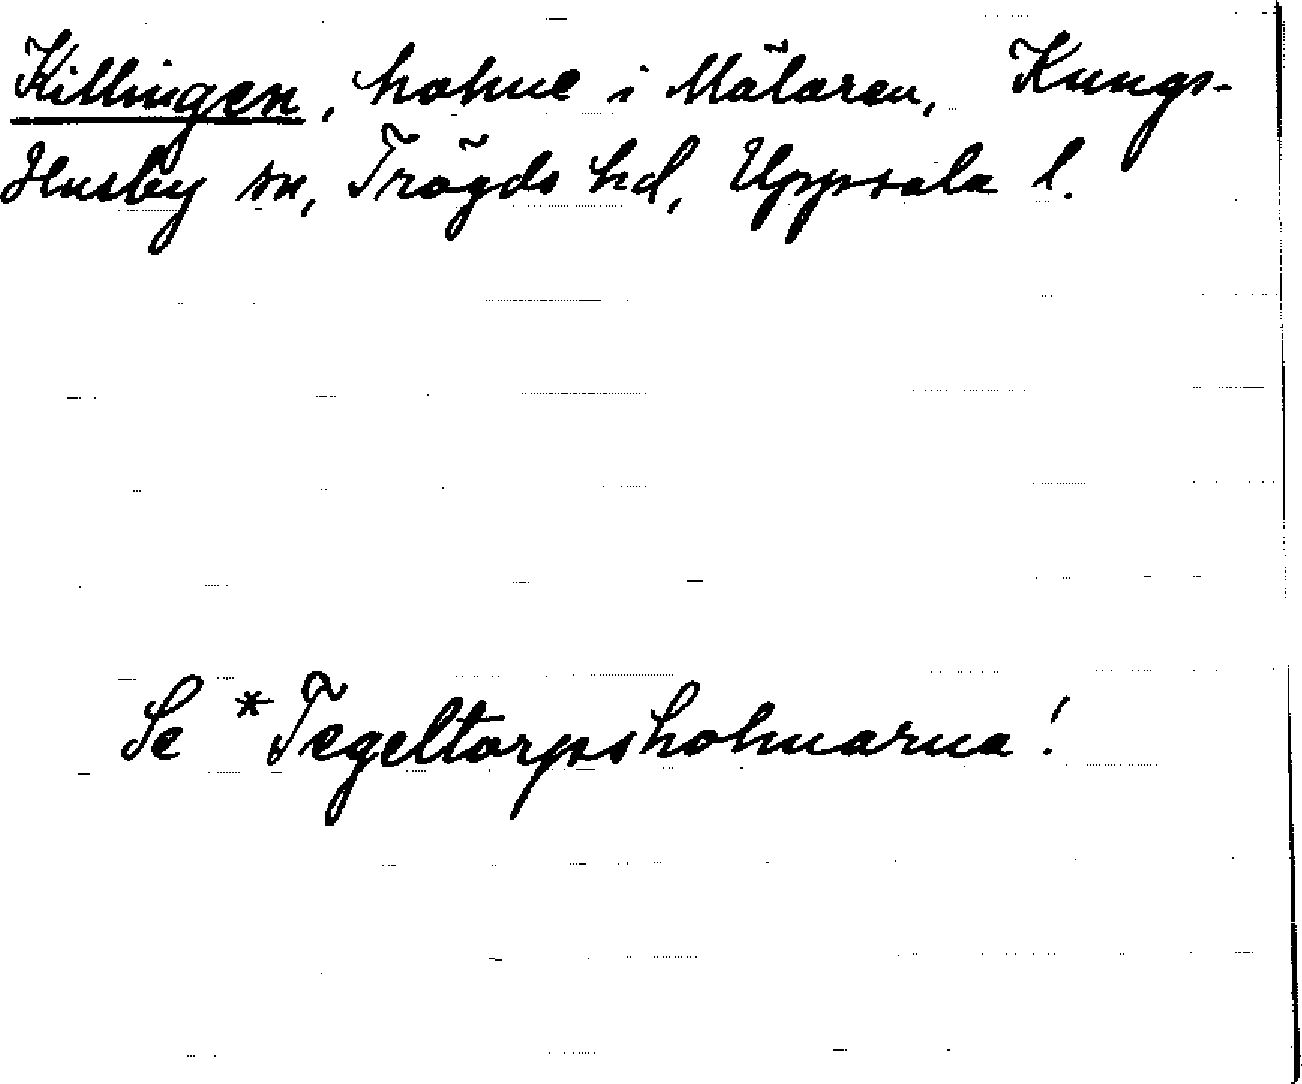 Killingen, holme i Mälaren, Kungs-
Husby sn, Trögds hd, Uppsala l.
Se *Tegeltorpsholmarna!